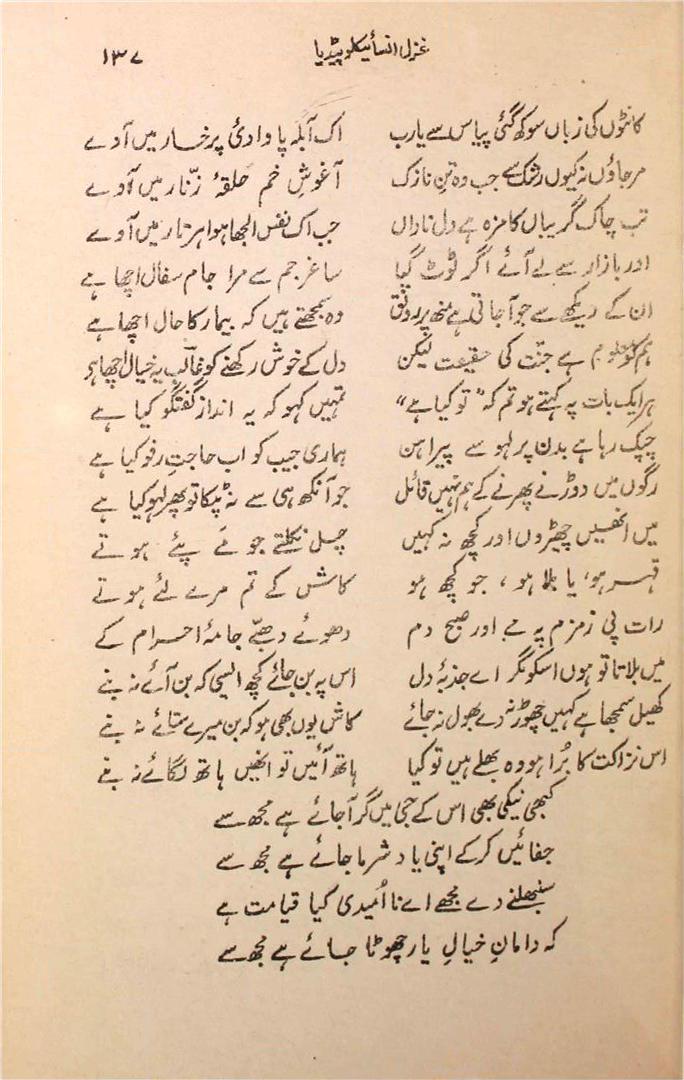 غزل انسائیکلوپیڈیا ۱۳۷
کانٹوں کی زباں سوکھ گئی پیاس سے یارب اک آبلہ پا وادیٔ پرخار میں آوے
مرجاؤں نہ کیوں رشک سے جب وہ تنِ نازک آغوشِ خم حلقۂ زنّار میں آوے
تب چاک گریباں کا مزہ ہے دل ناداں جب اک نفس الجھا ہوا ہر تار میں آوے
اور بازار سے لے آئے اگر ٹوٹ گیا ساغر جم سے مرا جام سفال اچھا ہے
ان کے دیکھے سے جو آجاتی ہے منھ پر رونق وہ سمجھتے ہیں کہ بیمار کا حال اچھا ہے
ہم کو معلوم ہے جنّت کی حقیقت لیکن دل کے خوش رکھنے کو غالبؔ یہ خیال اچھا ہے
ہر ایک بات پہ کہتے ہو تم کہ "تو کیا ہے" تمہیں کہو کہ یہ انداز گفتگو کیا ہے
چپک رہا ہے بدن پر لہو سے پیراہن ہماری جیب کو اب حاجتِ رفو کیا ہے
رگوں میں دوڑنے پھرنے کے ہم نہیں قائل جو آنکھ ہی سے نہ ٹپکا تو پھر لہو کیا ہے
میں انھیں چھیڑوں اور کچھ نہ کہیں چل نکلتے جو مَے پئے ہوتے
قہر ہو، یا بلا ہو، جو کچھ ہو کاش کے تم مرے لئے ہوتے
رات پی زمزم پہ مے اور صبح دم دھوئے دھبّے جامۂ احرام کے
میں بلاتا تو ہوں اسکو مگر اے جذبۂ دل اس پہ بن جائے کچھ ایسی کہ بن آئے نہ بنے
کھیل سمجھا ہے کہیں چھوڑ نہ دے بھول نہ جائے کاش یوں بھی ہو کہ بن میرے ستائے نہ بنے
اس نزاکت کا بُرا ہو وہ بھلے ہیں تو کیا ہاتھ آئیں تو انھیں ہاتھ لگائے نہ بنے
کبھی نیکی بھی اس کے جی میں گر آجائے ہے مجھ سے
جفائیں کرکے اپنی یاد شرما جائے ہے مجھ سے
سنبھلنے دے مجھے اے نا اُمیدی کیا قیامت ہے
کہ دامانِ خیالِ یار چھوٹا جائے ہے مجھ سے